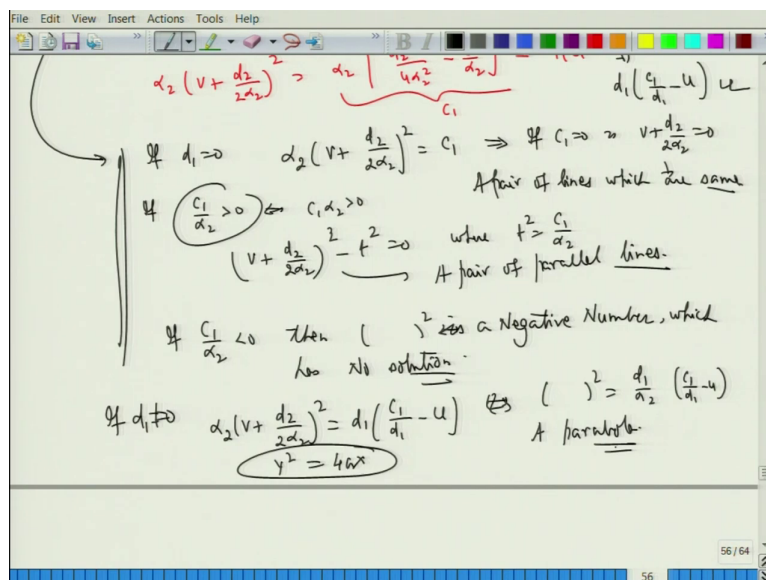 File Edit View Insert Actions Tools Help
α₂ (v + d₂/2α₂)² = α₂ [ d₂²/4α₂²
d₁(c₁/d₁ - u)
c₁
If d₁=0 α₂(v + d₂/2α₂)² = c₁ ⇒ If c₁=0 v+d₂/2α₂=0
A pair of lines which are same
If c₁/α₂ >0 ⇐ c₁α₂>0
(v + d₂/2α₂)² - t² =0 where t² = c₁/α₂
A pair of parallel lines.
If c₁/α₂ <0 then ( )² is a Negative Number, which
has No solution.
If d₁≠0 α₂(v+ d₂/2α₂)² = d₁(c₁/d₁ - u) ⇔ ( )² = d₁/α₂ (c₁/d₁ - u)
A parabola.
y² = 4ax
56 / 64
56